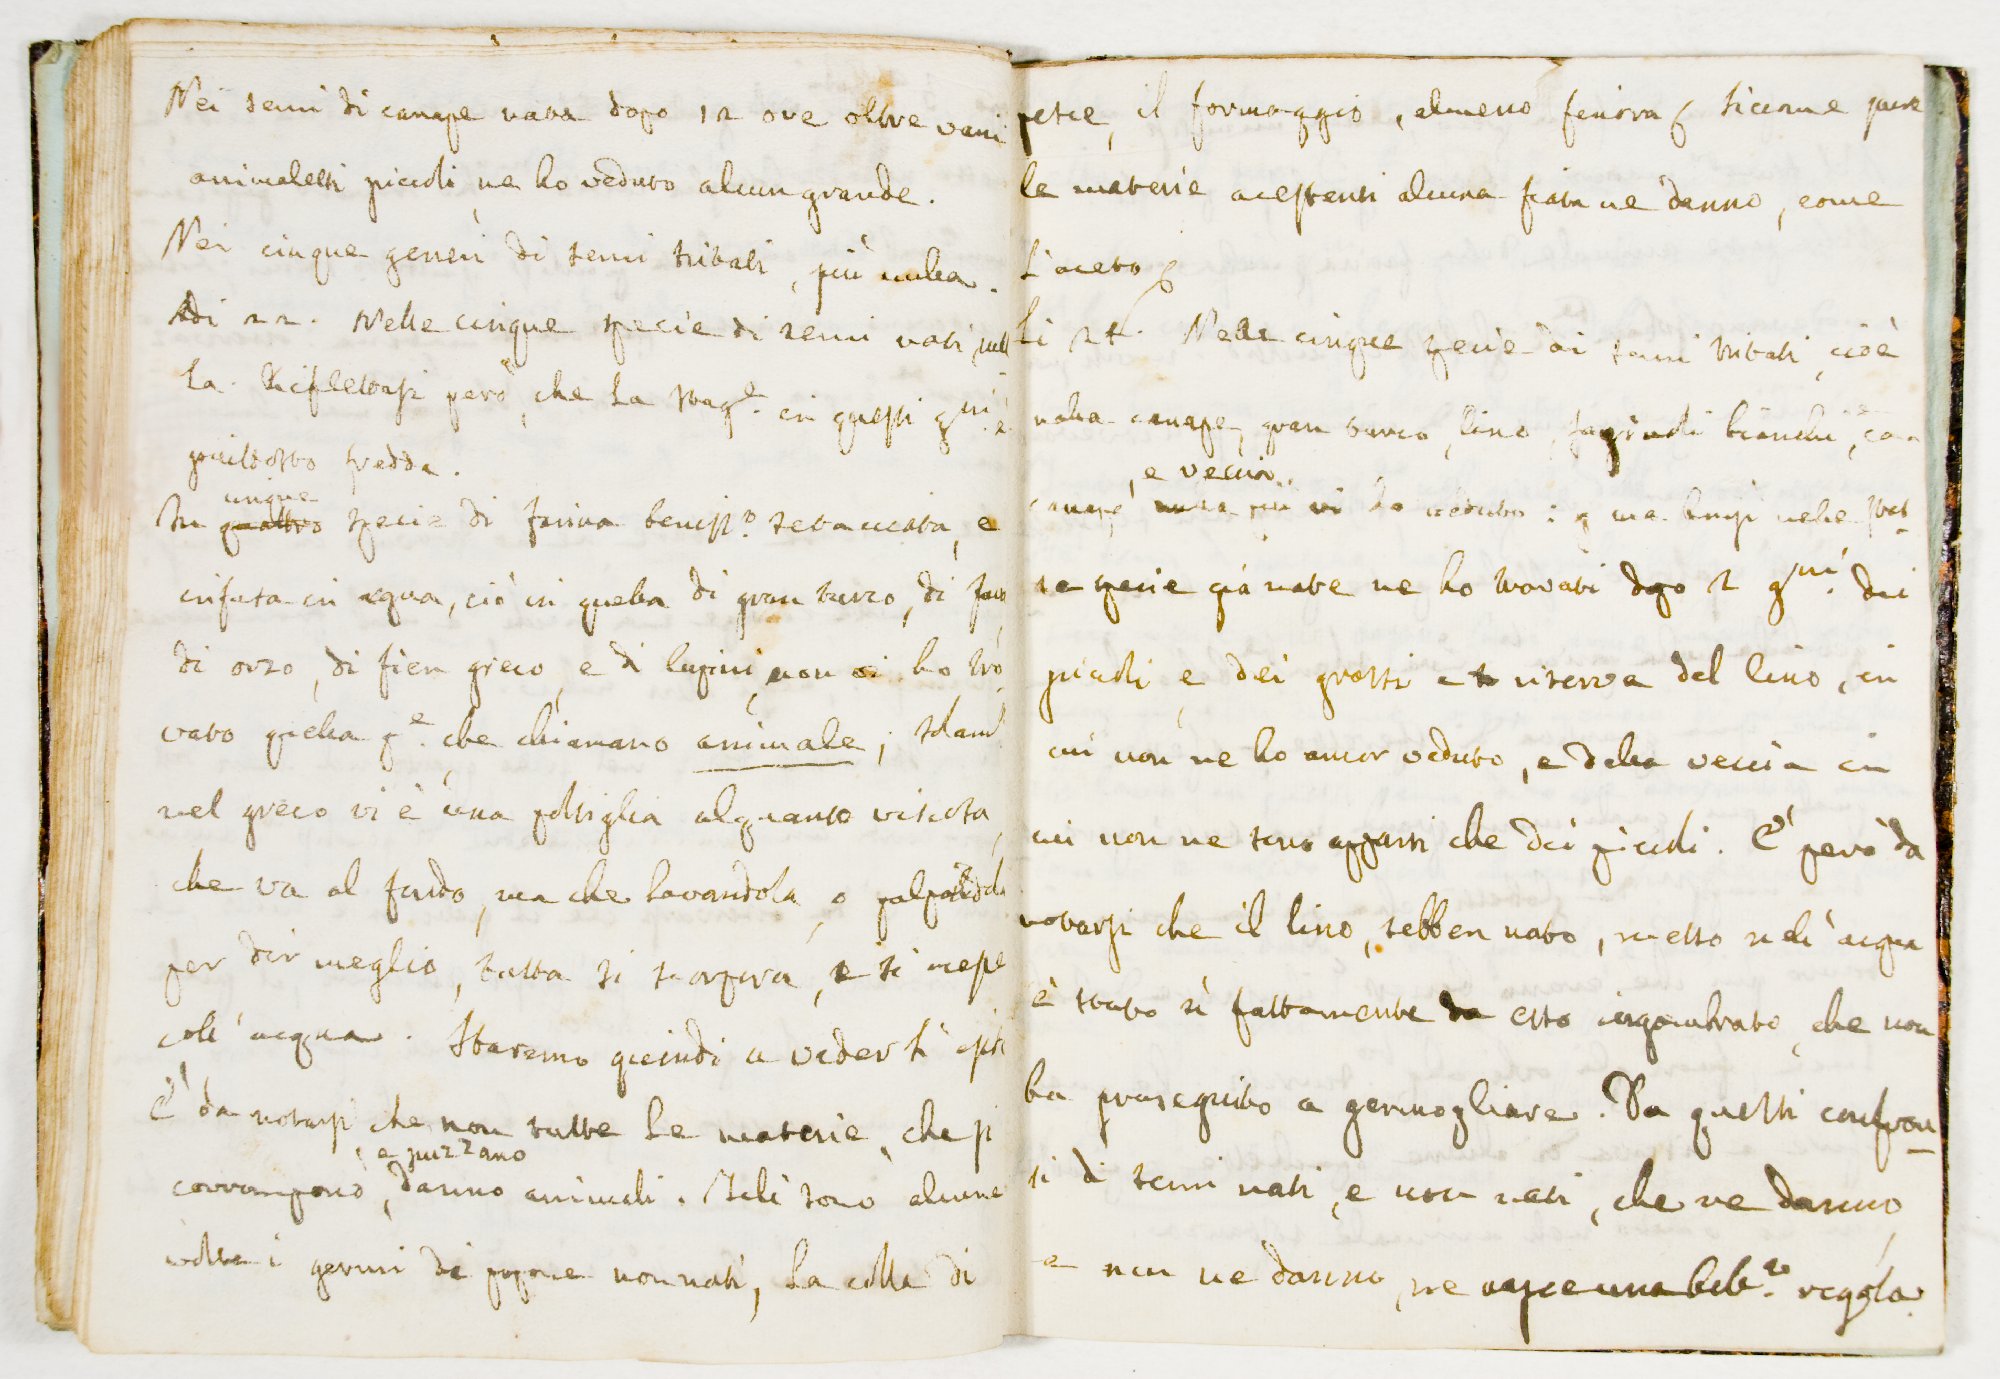 Nei semi di canape nata dopo 12 ore oltre varii
animaletti piccoli ne ho veduto alcun grande.
Nei cinque generi di semi tritati, più nulla.
Adi 22. Nelle cinque specie di semi nati, nul
la. Riflettasi però, che la stag.e in questi g.ni è
piuttosto fredda.
cinque
In quattro specie di farina beniss.o setacciata, e
infusa in acqua, ciò in quella di gran turco, di fava
di orzo, di fien greco, e di lupini, non ci ho tro
vato quella g.e che chiamano animale; soland
nel greco vi è una poltiglia alquanto viscosa,
che va al fondo, ma che lavandola, o palpandola
per dir meglio, tutta si scorpora, e si mesce
coll' acqua. Staremo quindi a veder l'
È da notarsi che non tutte le materie, che si
e puzzano
corrompono, danno animali. Tali sono alcune
volte i germi di popone non nati, la colla di
pesce, il formaggio, almeno finora; siccome pure
le materie acescenti alcuna fiata ne danno, come
l'aceto
Li 24. Nelle cinque specie di semi tritati, cioè
canape, gran turco, lino, fagiuoli bianchi,
e veccia
canape, nulla più vi ho veduto: ma bensì nelle stes
se specie già nate ne ho trovati dopo 2 g.ni dei
piccoli, e dei grossi a riserva del lino, in
cui non ne ho ancor veduto, e della veccia in
cui non ne sono apparsi che dei piccoli. È però da
notarsi che il lino, sebben nato, messo nell' acqua
è stato sì fattamente da esso ingombrato, che non
ha proseguito a germogliare. Da questi confron
ti di semi nati, e non nati, che ne danno,
e non ne danno, ne nasce una bell.a regola.